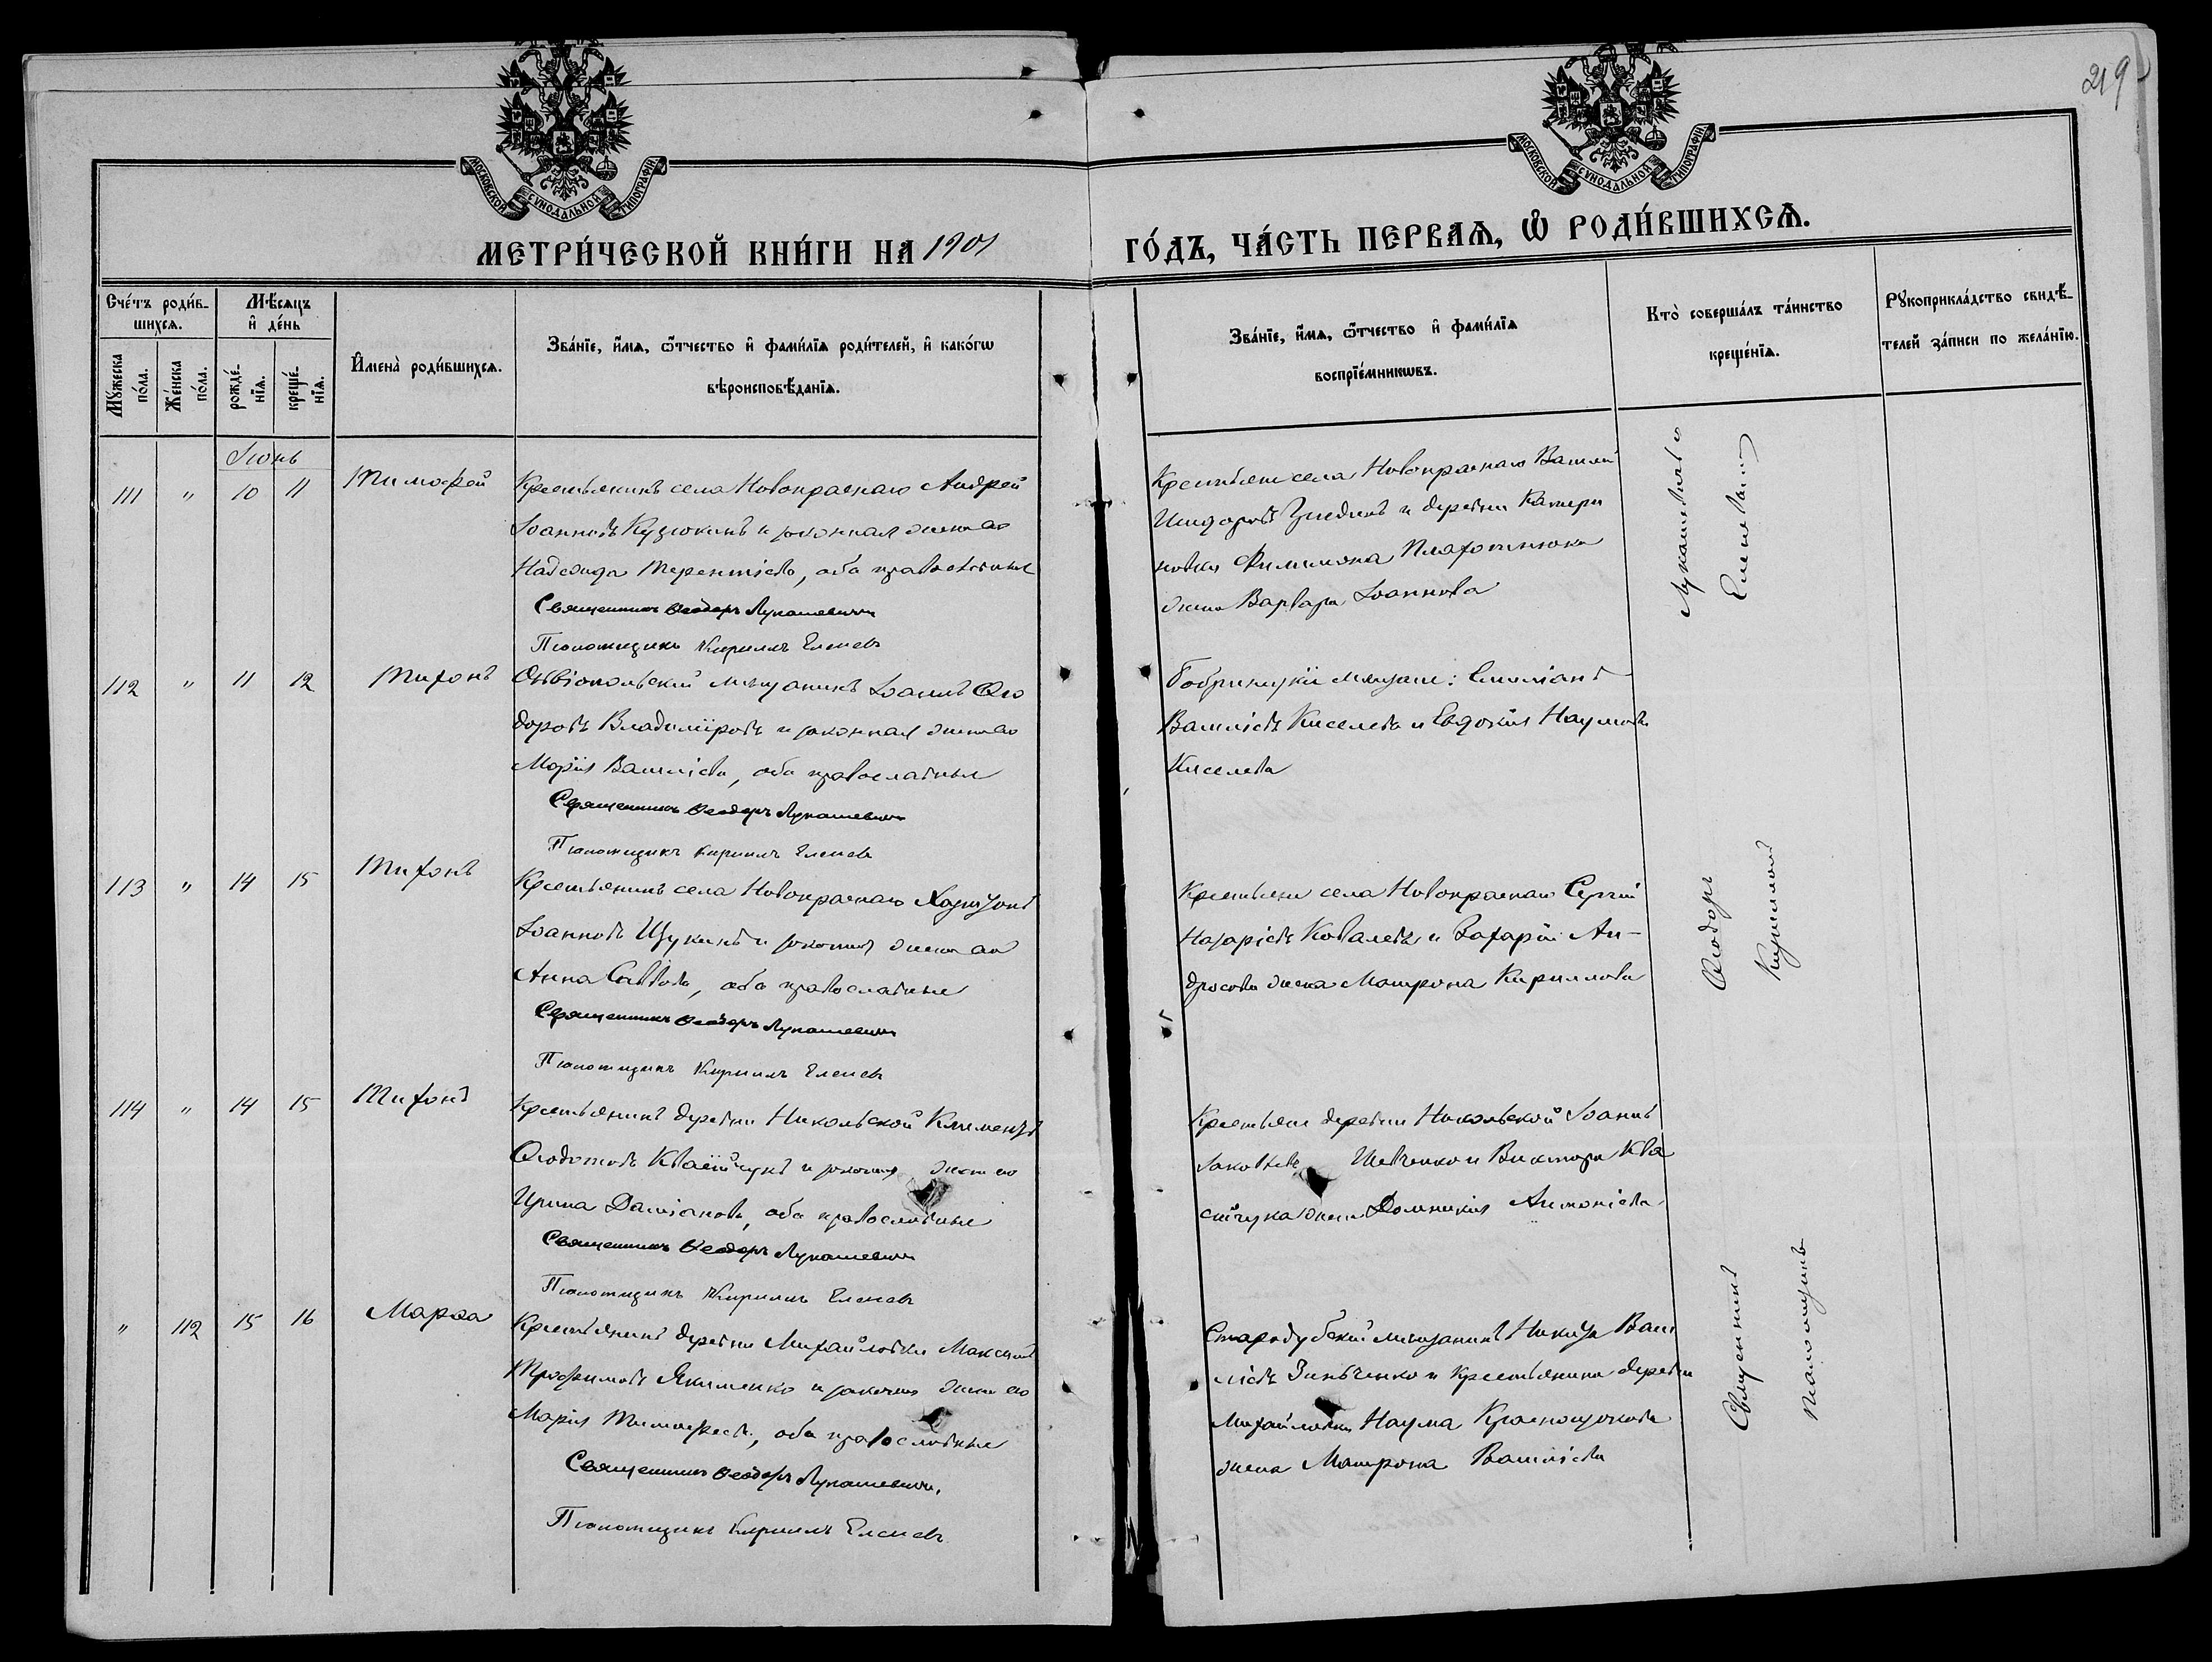 219
МОСКОВСКОЙ СѴНОДАЛЬНОЙ ТИПОГРАФІИ
МОСКОВСКОЙ СѴНОДАЛЬНОЙ ТИПОГРАФІИ
МЕТРИ́ЧЕСКОЙ КНИ́ГИ НА 1901
ГО́ДЪ, ЧА́СТЬ ПЕРВАѦ, Ѡ҆ РОДИ́ВШИХСѦ.
Сче́тъ роди́в-
шихсѧ.
Мꙋжеска по́ла.
Же́нска по́ла.
Мѣ́сяцъ
и҆ де́нь
рожде́-
нїѧ.
креще́-
нїѧ.
И҆мена̀ роди́вшихсѧ.
Зва́нїе, и҆́мѧ, ѻ҆́тчество и҆ фами́лїѧ роди́телей, и҆ како́гѡ
вѣроисповѣ́данїѧ.
Зва́нїе, и҆́мѧ, ѻ҆́тчество и҆ фами́лїѧ
воспрїе́мникѡвъ.
Кто̀ соверша́лъ та́инство
креще́нїѧ.
Рꙋкоприкла́дство свидѣ́-
телей за́писи по жела́нїю.
Іюнь
111 " 10 11 Тимофей
Крестьянинъ села Новокраснаго Андрей
Іоанновъ Кузюкинъ и законная жена его
Надежда Терентіева, оба православные
Священникъ Ѳеодоръ Лукашевичъ
Псаломщикъ Кириллъ Еленевъ
Крестьяне села Новокраснаго Василій
и деревни Катери
новки Филимона
жена Варвара Іоаннова
112 " 11 12 Тихонъ
Ольвіопольскій мѣщанинъ Іоаннъ Ѳео
доровъ Владиміровъ и законная жена его
Марія Василіева, оба православные
Священникъ Ѳеодоръ Лукашевичъ
Псаломщикъ Кириллъ Еленевъ
Бобринецкіе мѣщане:
Василіевъ Киселевъ и Евдокія Наумова
Киселева
113 " 14 15 Тихонъ
Крестьянинъ села Новокраснаго Харитонъ
Іоанновъ Щукинъ и законная жена его
Анна Саввова, оба православные
Священникъ Ѳеодоръ Лукашевичъ
Псаломщикъ Кириллъ Еленевъ
Крестьяне села Новокраснаго Сергій
Назаріевъ Ковалевъ и Захарія Ан-
дросова жена Матрона Кириллова
114 " 14 15 Тихонъ
Крестьянинъ деревни Никольской Климентъ
Ѳеодотовъ и законная жена его
Ирина Даміанова, оба православные
Священникъ Ѳеодоръ Лукашевичъ
Псаломщикъ Кириллъ Еленевъ
Крестьяне деревни Никольской Іоаннъ
Іаковлевъ Шевченко и Виктора Ква
жена Домникія Антоніева
" 112 15 16 Марѳа
Крестьянинъ деревни Михайловки Максимъ
Трофимовъ Якименко и законная жена его
Марія Тимофеева, оба православные
Священникъ Ѳеодоръ Лукашевичъ.
Псаломщикъ Кириллъ Еленевъ
Стародубскій мѣщанинъ Никита Васи
ліевъ Зинченко и крестьянина деревни
Михайловки Наума Краснощокова
жена Матрона Василіева
Священникъ Ѳеодоръ Лукашевичъ и
Псаломщикъ Кириллъ Еленевъ